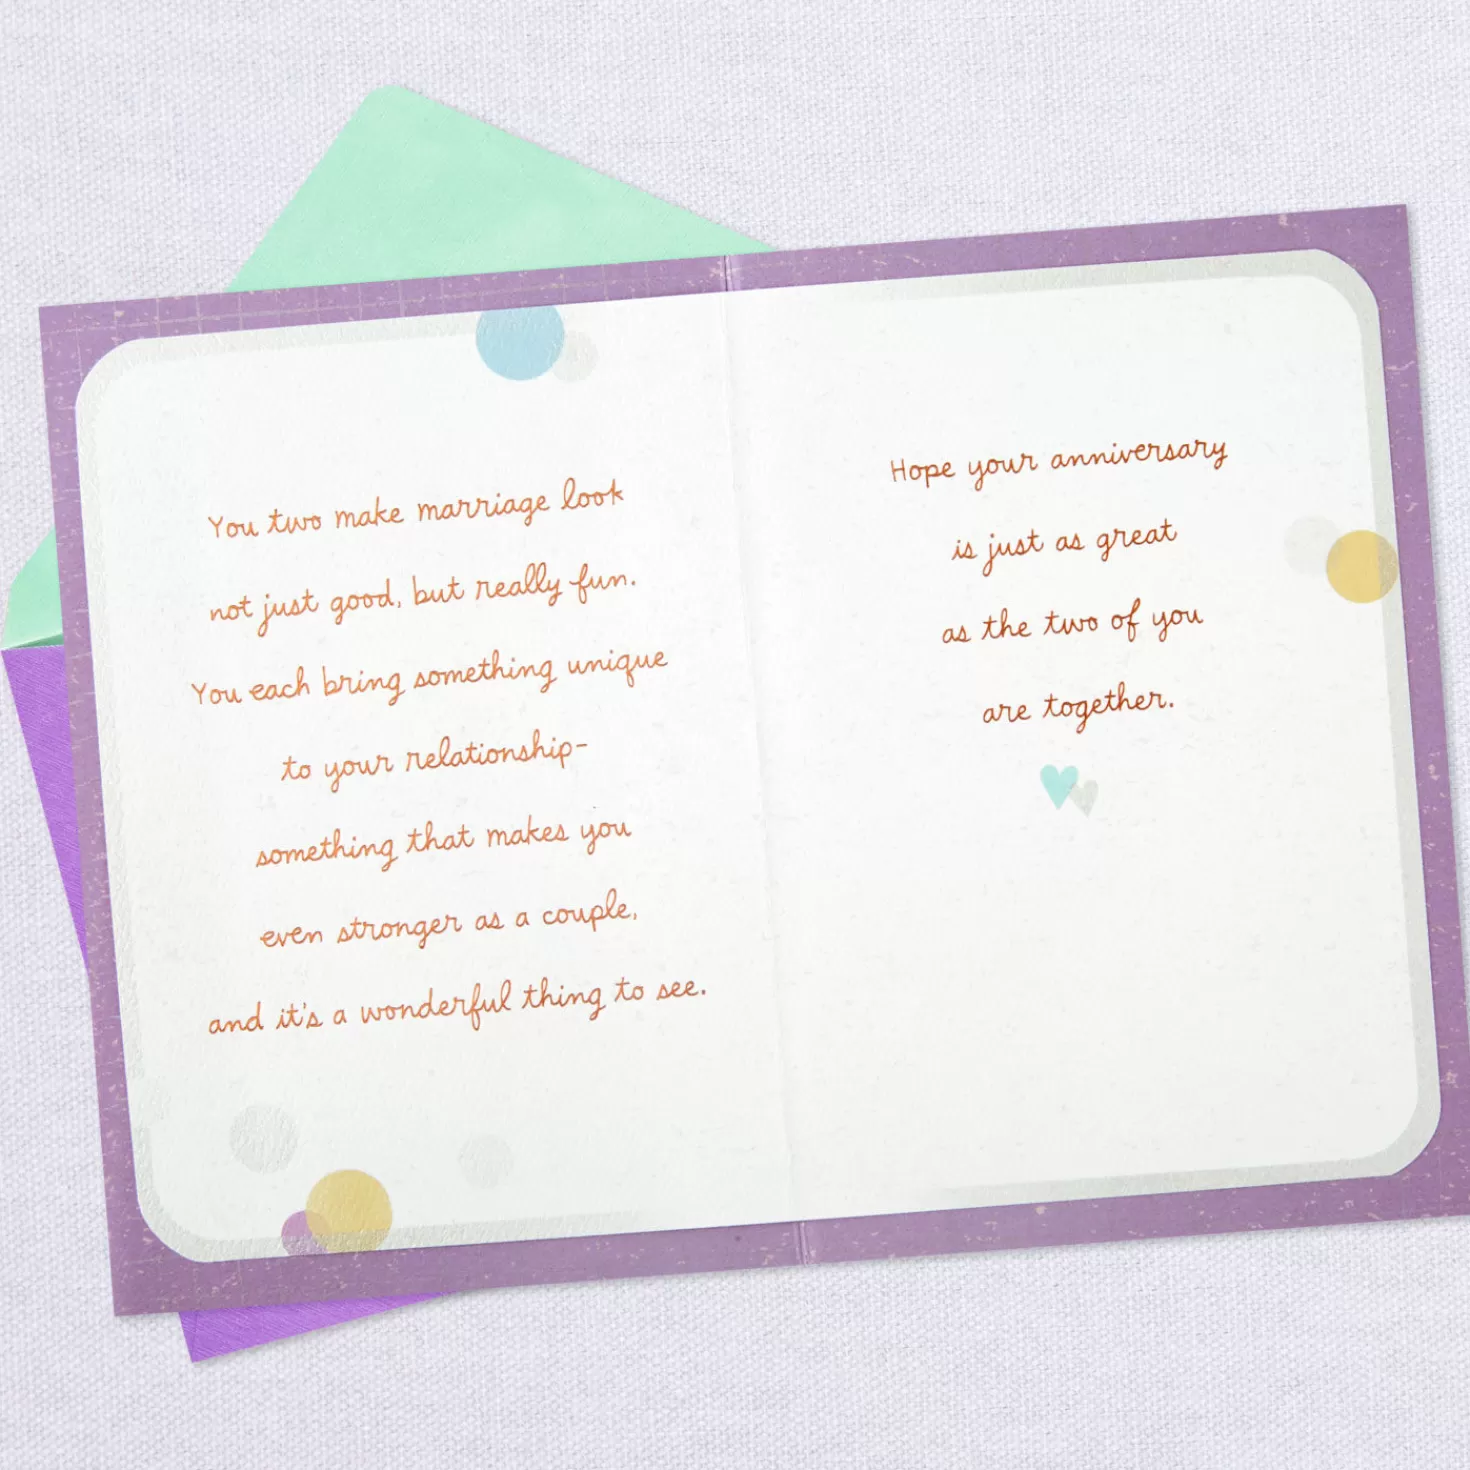 You two make marriage look
not just good, but really fun.
You each bring something unique
to your relationship–
something that makes you
even stronger as a couple,
and it's a wonderful thing to see.
Hope your anniversary
is just as great
as the two of you
are together.